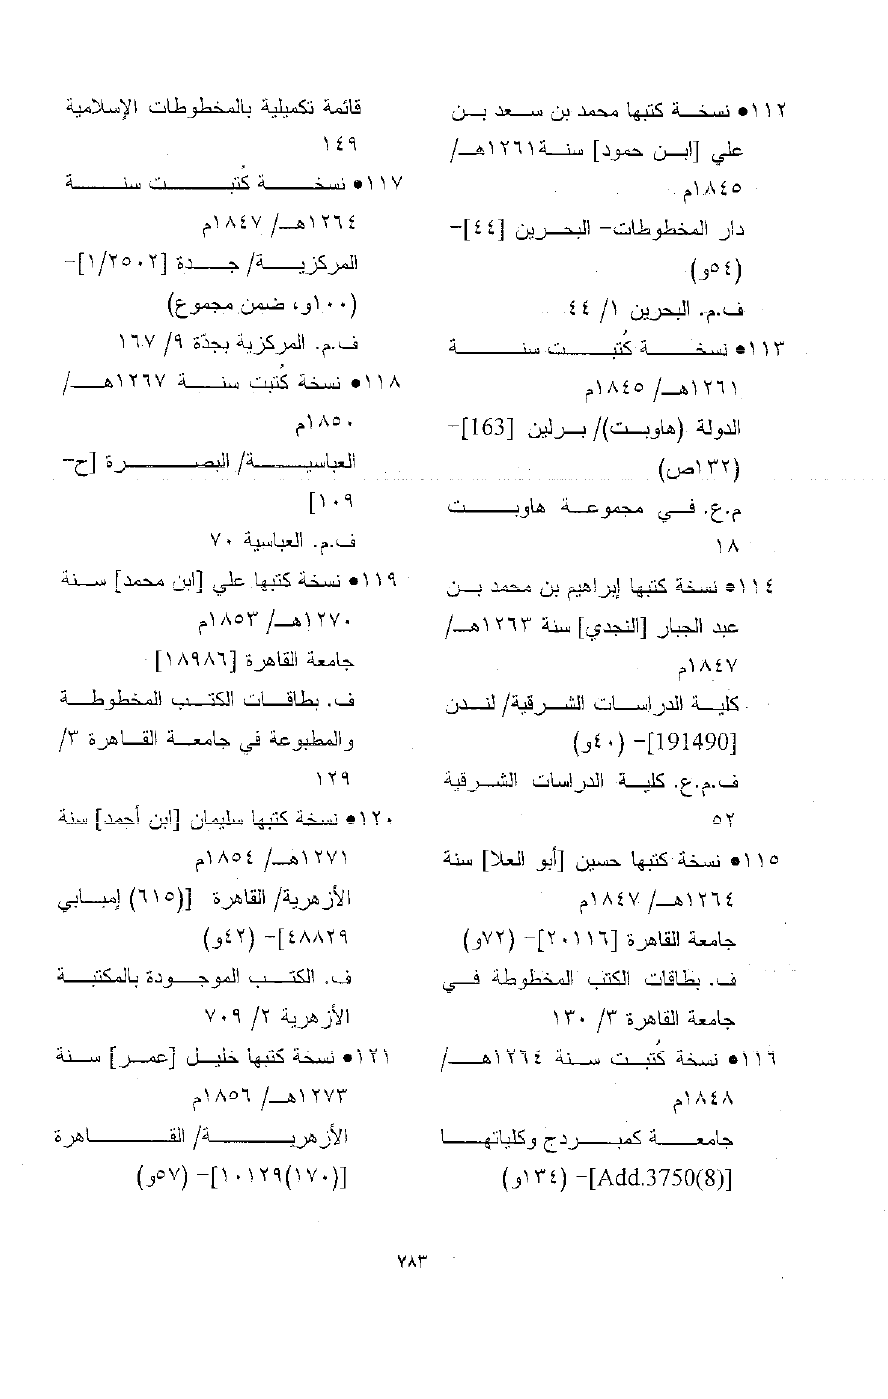 ١١٢• نسخة كتبها محمد بن سعد بن
علي [ابن حمود] سنة ١٢٦١هـ/
١٨٤٥م
دار المخطوطات- البحرين [٤٤]-
(٥٤و)
ف.م. البحرين ١/ ٤٤
١١٣• نسخة كُتبت سنة
١٢٦١هـ/ ١٨٤٥م
الدولة (هاوبت)/ برلين [163]-
(١٣٢ص)
م.ع. في مجموعة هاوبت
١٨
١١٤• نسخة كتبها إبراهيم بن محمد بن
عبد الجبار [النجدي] سنة ١٢٦٣هـ/
١٨٤٧م
كلية الدراسات الشرقية/ لندن
[191490]- (٤٠و)
ف.م.ع. كلية الدراسات الشرقية
٥٢
١١٥• نسخة كتبها حسين [أبو العلا] سنة
١٢٦٤هـ/ ١٨٤٧م
جامعة القاهرة [٢٠١١٦]- (٧٢و)
ف. بطاقات الكتب المخطوطة في
جامعة القاهرة ٣/ ١٣٠
١١٦• نسخة كُتبت سنة ١٢٦٤هـ/
١٨٤٨م
جامعة كمبردج وكلياتها
[Add.3750(8)]- (١٣٤و)
قائمة تكميلية بالمخطوطات الإسلامية
١٤٩
١١٧• نسخة كُتبت سنة
١٢٦٤هـ/ ١٨٤٧م
المركزية/ جدة [١/٢٥٠٢]-
(١٠٠و، ضمن مجموع)
ف.م. المركزية بجدّة ٩/ ١٦٧
١١٨• نسخة كُتبت سنة ١٢٦٧هـ/
١٨٥٠م
العباسية/ البصرة [ح-
١٠٩]
ف.م. العباسية ٧٠
١١٩• نسخة كتبها علي [ابن محمد] سنة
١٢٧٠هـ/ ١٨٥٣م
جامعة القاهرة [١٨٩٨٦]
ف. بطاقات الكتب المخطوطة
والمطبوعة في جامعة القاهرة ٣/
١٢٩
١٢٠• نسخة كتبها سليمان [ابن أحمد] سنة
١٢٧١هـ/ ١٨٥٤م
الأزهرية/ القاهرة [(٦١٥) إمبابي
٤٨٨٢٩]- (٤٢و)
ف. الكتب الموجودة بالمكتبة
الأزهرية ٢/ ٧٠٩
١٢١• نسخة كتبها خليل [عمر] سنة
١٢٧٣هـ/ ١٨٥٦م
الأزهرية/ القاهرة
[(١٧٠)١٠١٢٩]- (٥٧و)
٧٨٣